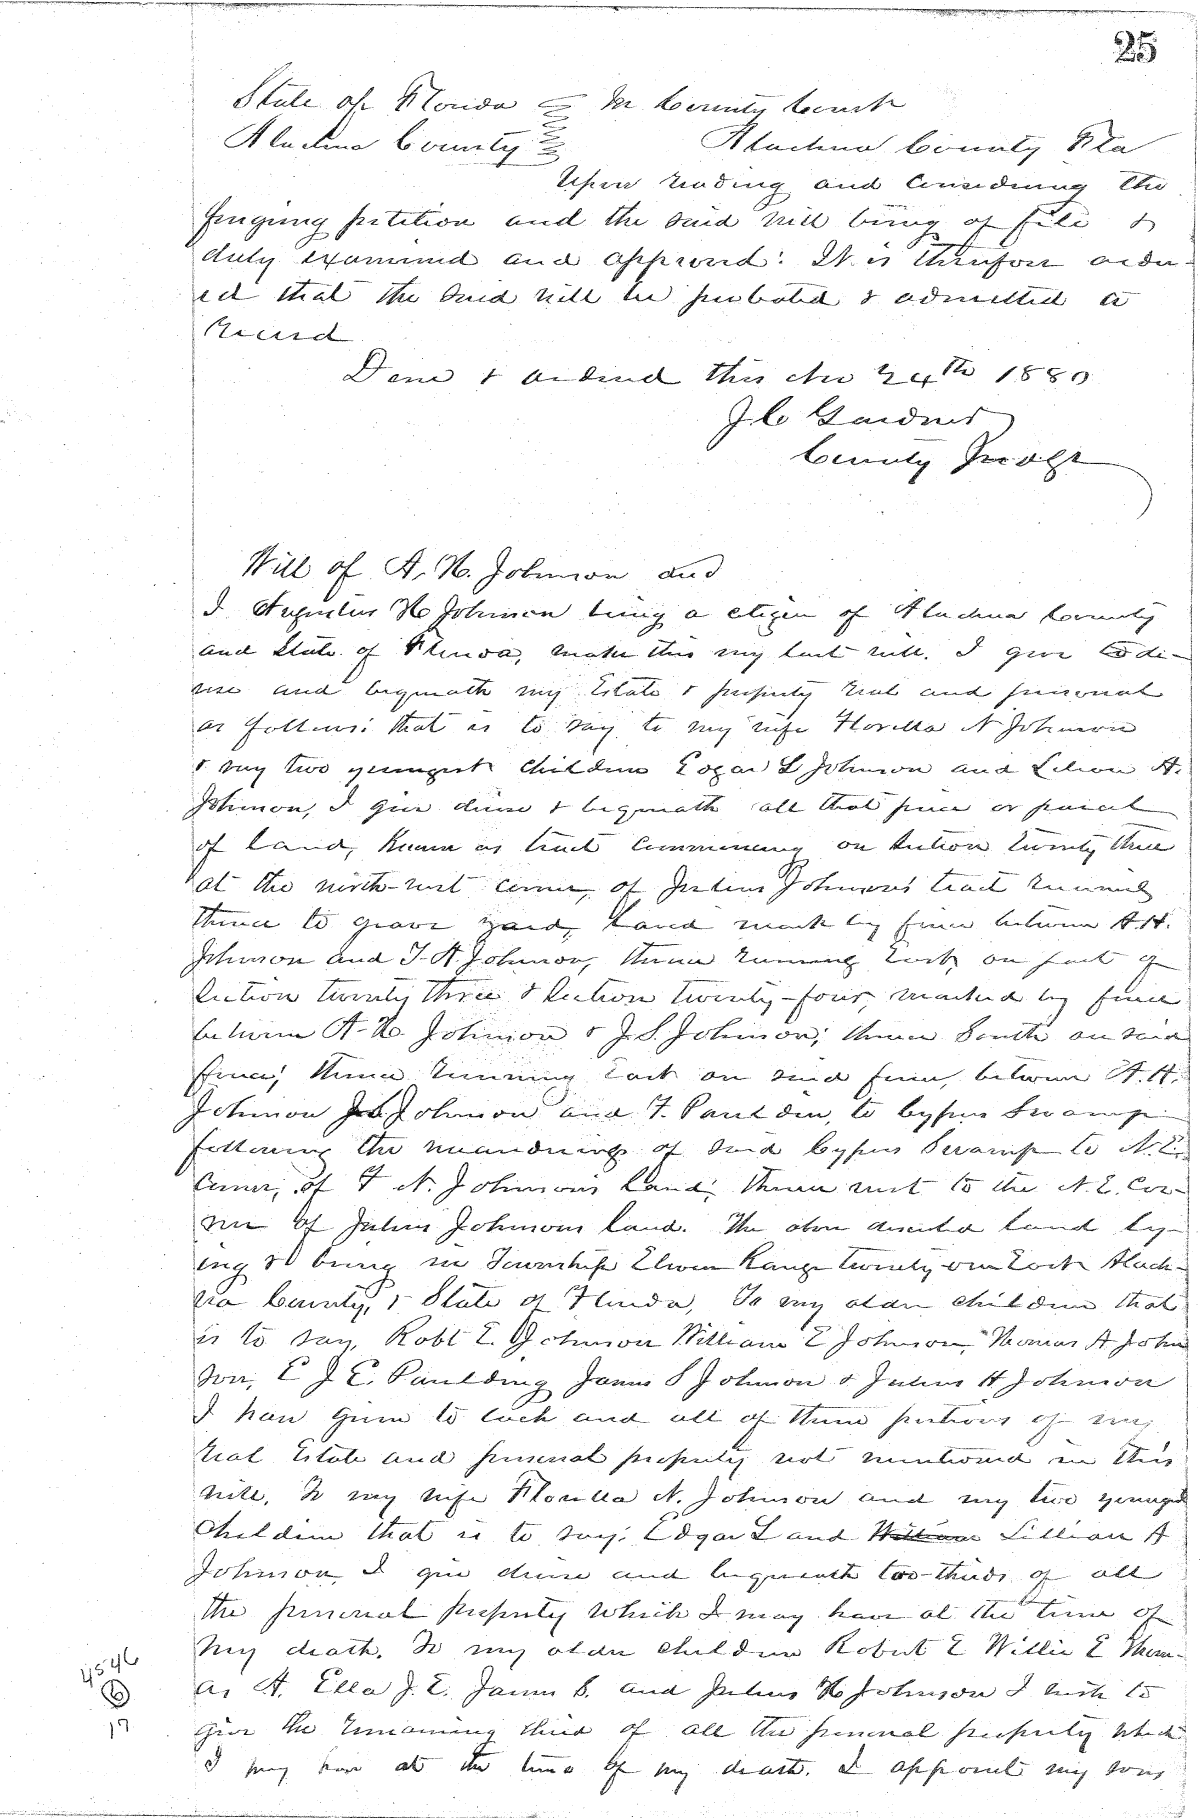 25
State of Florida In County Court
Alachua County Alachua County Fla
Upon reading and considering the
forgoing petition and the said will being of file &
duly examined and approved: It is therefore order-
ed that the said will be probated & admitted to
Record
Done & ordered this 24th 1880
J C Gardner
County Judge
Will of A. H. Johnson and
I Augustus H Johnson being a citizen of Alachua County
and State of Florida, make this my last will. I give de-
vise and bequeath my Estate & property real and personal
as follows: that is to say to my wife Florella N Johnson
& my two youngest children Edgar L Johnson and Lilian A.
Johnson, I give devise & bequeath all that piece or parcel
of land, known as tract commencing on Section twenty three
at the north-west corner, of Julius Johnson's tract running
thence to grave yard, land mark by fence between A.H.
Johnson and T. A. Johnson, thence running East, on part of
Section twenty three & Section twenty-four, marked by fence
between A. H. Johnson & J. S. Johnson; thence South on said
fence; thence running East on said fence, between A. H.
Johnson J S Johnson and F. Pauldin, to Cypres Swamp
following the meanderings of said Cypres Swamp to N. E.
Corner, of F N. Johnson's land; thence west to the N. E. Cor-
ner of Julius Johnsons land. The above described land ly-
ing & being in Township Eleven Range twenty one East Alach-
ua County, & State of Florida, To my older children that
is to say, Robt E. Johnson William E Johnson, Thomas A John
son, E J E. Paulding James S Johnson & Julius H Johnson
I have given to each and all of them portions of my
real Estate and personal property not mentioned in this
will. To my wife Florella N. Johnson and my two youngest
children that is to say: Edgar L and William Lillian A
Johnson, I give devise and bequeath two-thirds of all
the personal property which I may have at the time of
my death. To my older children Robert E Willie E Thom-
as A. Ella J. E. James S. and Julius H Johnson I wish to
give the remaining third of all the personal property which
I may have at the time of my death. I appoint my sons
4546
6
17